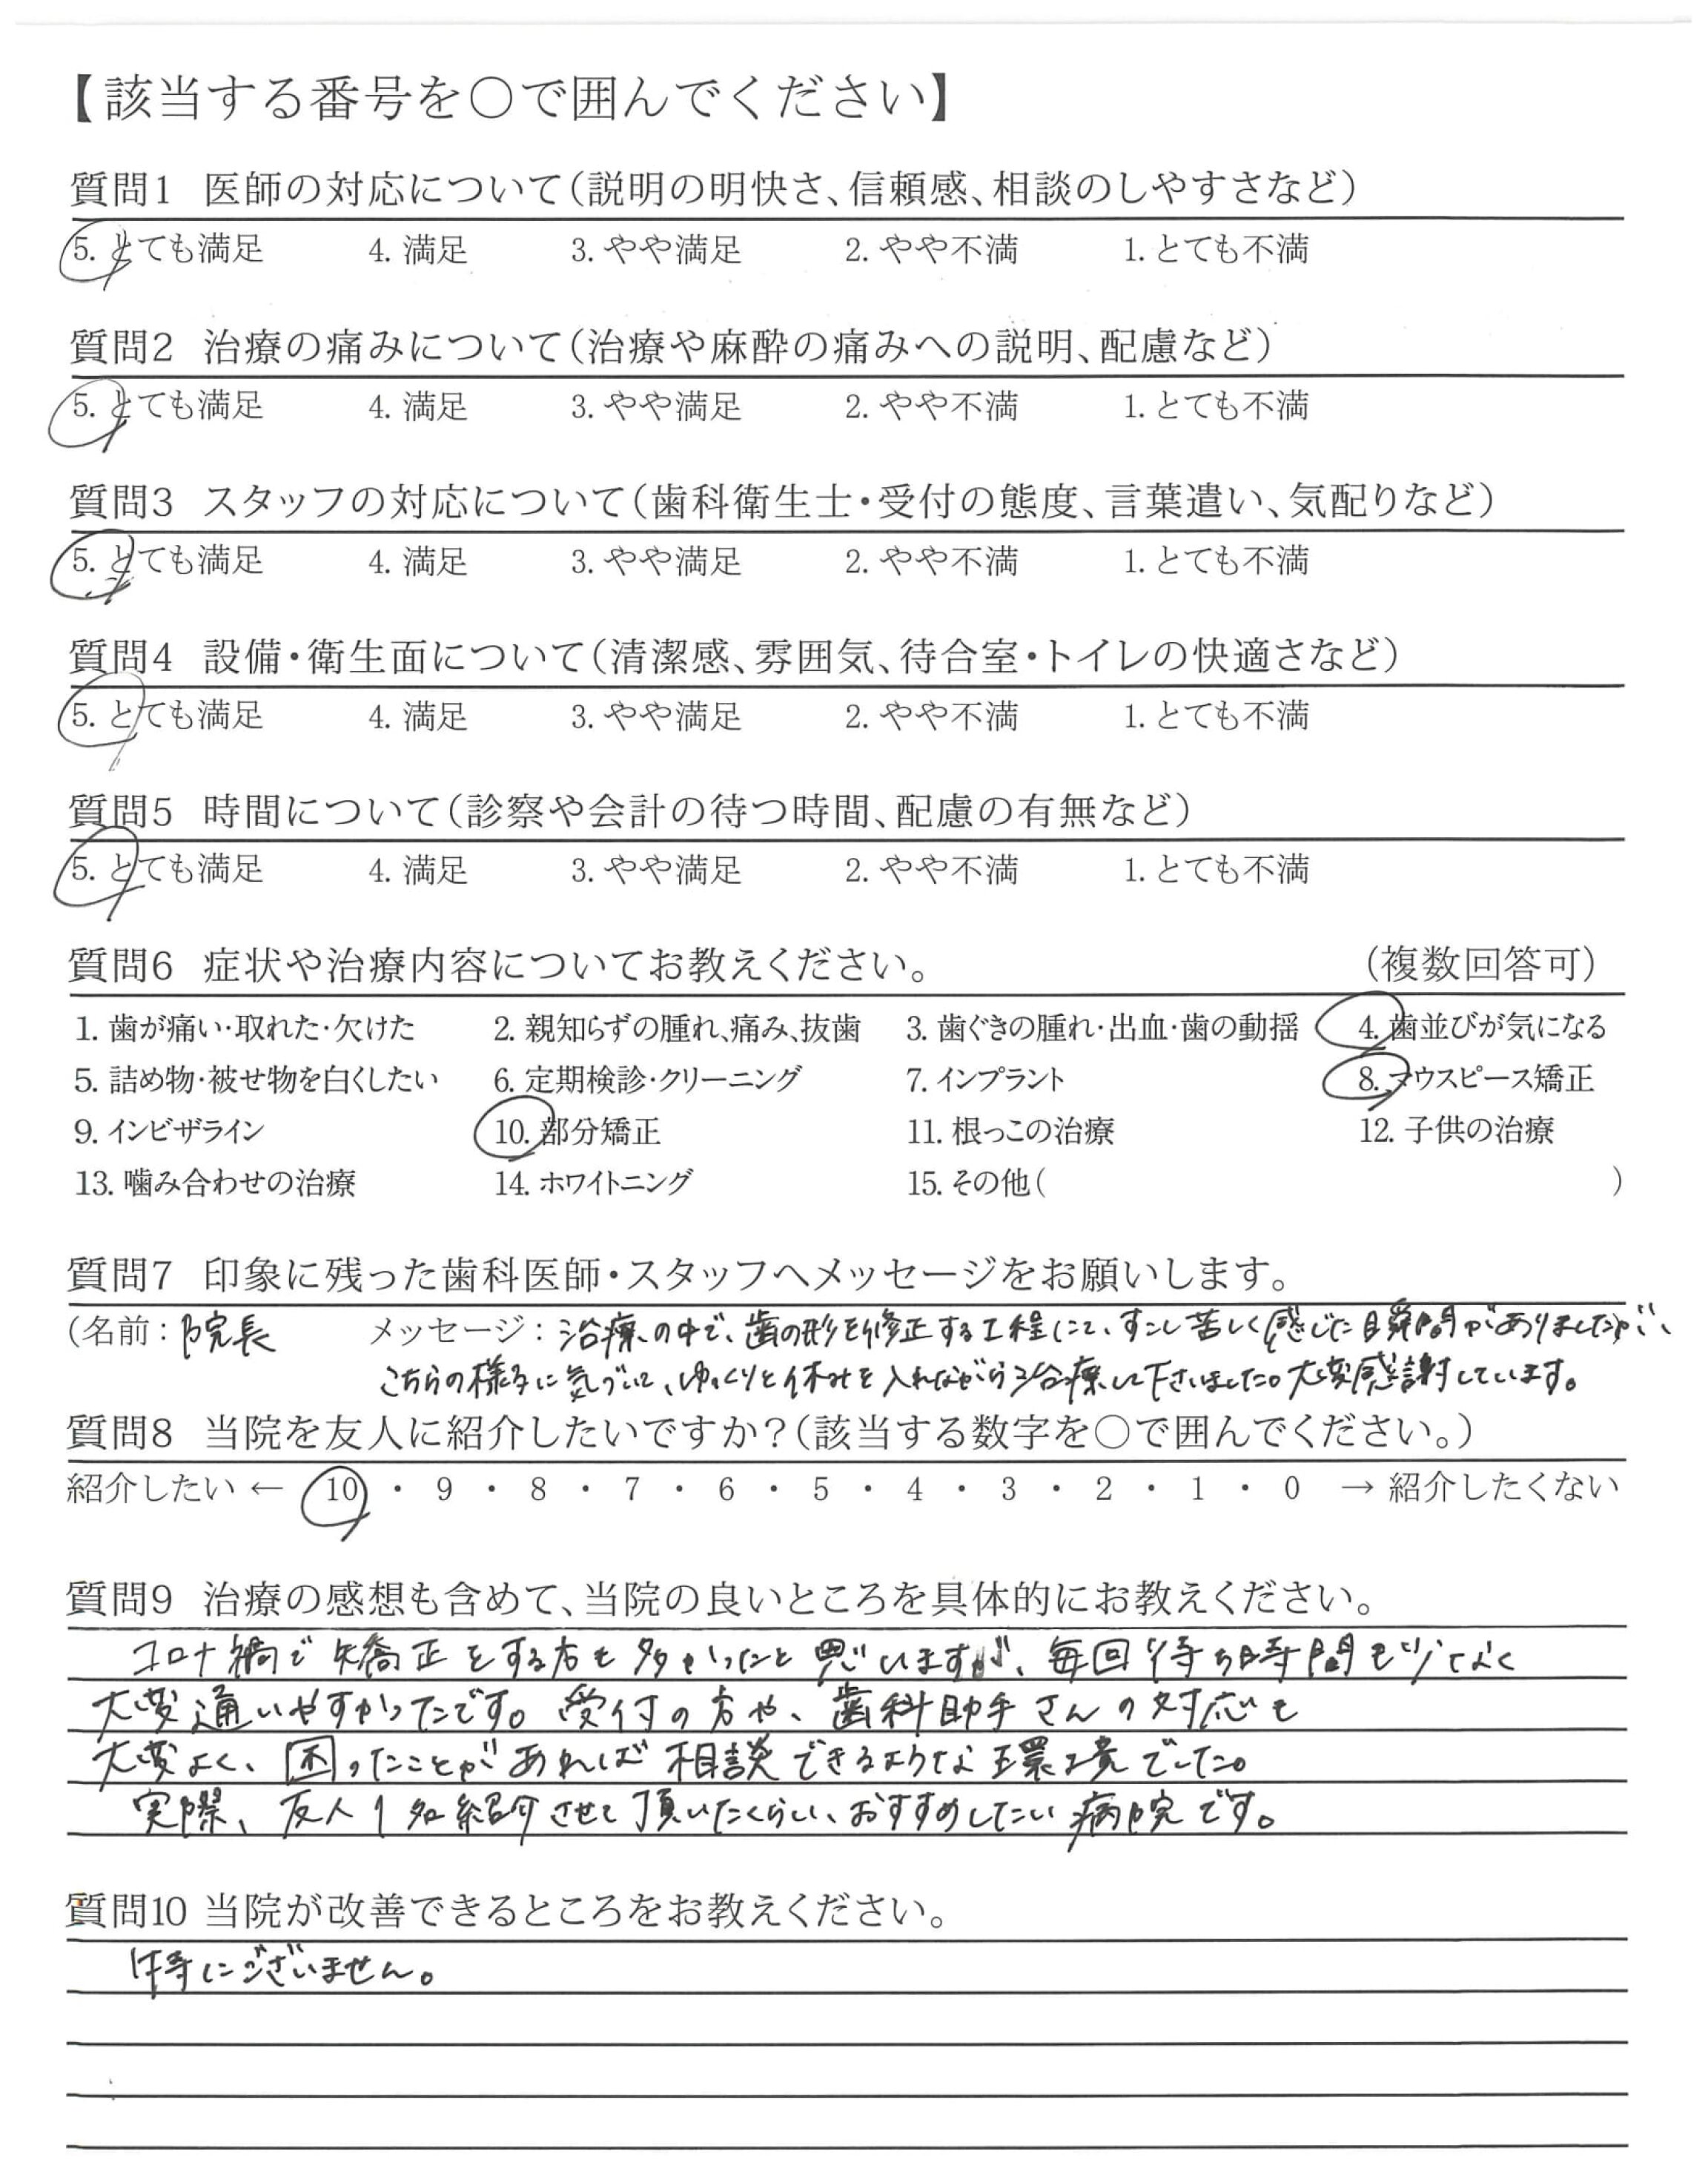 【該当する番号を○で囲んでください】
質問1 医師の対応について(説明の明快さ、信頼感、相談のしやすさなど)
5. とても満足 4. 満足 3. やや満足 2. やや不満 1. とても不満
質問2 治療の痛みについて(治療や麻酔の痛みへの説明、配慮など)
5. とても満足 4. 満足 3. やや満足 2. やや不満 1. とても不満
質問3 スタッフの対応について(歯科衛生士・受付の態度、言葉遣い、気配りなど)
5. とても満足 4. 満足 3. やや満足 2. やや不満 1. とても不満
質問4 設備・衛生面について(清潔感、雰囲気、待合室・トイレの快適さなど)
5. とても満足 4. 満足 3. やや満足 2. やや不満 1. とても不満
質問5 時間について(診察や会計の待つ時間、配慮の有無など)
5. とても満足 4. 満足 3. やや満足 2. やや不満 1. とても不満
質問6 症状や治療内容についてお教えください。 (複数回答可)
1. 歯が痛い・取れた・欠けた 2. 親知らずの腫れ、痛み、抜歯 3. 歯ぐきの腫れ・出血・歯の動揺 4. 歯並びが気になる
5. 詰め物・被せ物を白くしたい 6. 定期検診・クリーニング 7. インプラント 8. マウスピース矯正
9. インビザライン 10. 部分矯正 11. 根っこの治療 12. 子供の治療
13. 噛み合わせの治療 14. ホワイトニング 15. その他( )
質問7 印象に残った歯科医師・スタッフへメッセージをお願いします。
(名前：院長 メッセージ：治療の中で、歯の形を修正する工程にて、すこし苦しく感じた瞬間がありましたが、
こちらの様子に気づいて、ゆっくりと休みを入れながら治療して下さいました。大変感謝しています。
質問8 当院を友人に紹介したいですか？(該当する数字を○で囲んでください。)
紹介したい ← 10 ・ 9 ・ 8 ・ 7 ・ 6 ・ 5 ・ 4 ・ 3 ・ 2 ・ 1 ・ 0 → 紹介したくない
質問9 治療の感想も含めて、当院の良いところを具体的にお教えください。
コロナ禍で矯正をする方も多かったと思いますが、毎回待ち時間も少なく
大変通いやすかったです。受付の方や、歯科助手さんの対応も
大変よく、困ったことがあれば相談できるような環境でした。
実際、友人1名紹介させて頂いたくらい、おすすめしたい病院です。
質問10 当院が改善できるところをお教えください。
特にございません。